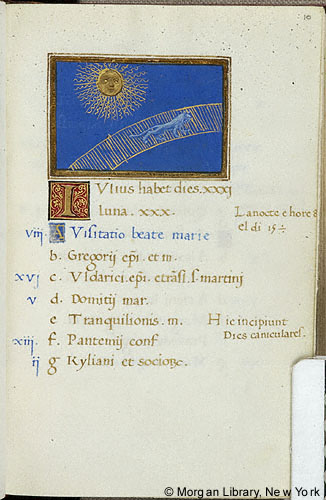 10
IVlius habet dies.xxxj
luna.xxx.
La nocte e hore 8
el di 15 ½
viij A Visitatio beate marie
b. Gregorij epi. et m.
xvj c. Vldarici.epi. etrasl.s.martini
v d. Domitij mar.
e Tranquilionis.m.
Hic incipiunt
Dies caniculares.
xiij. f. Pantemij conf
ij g Kyliani et socioꝝ.
© Morgan Library, New York